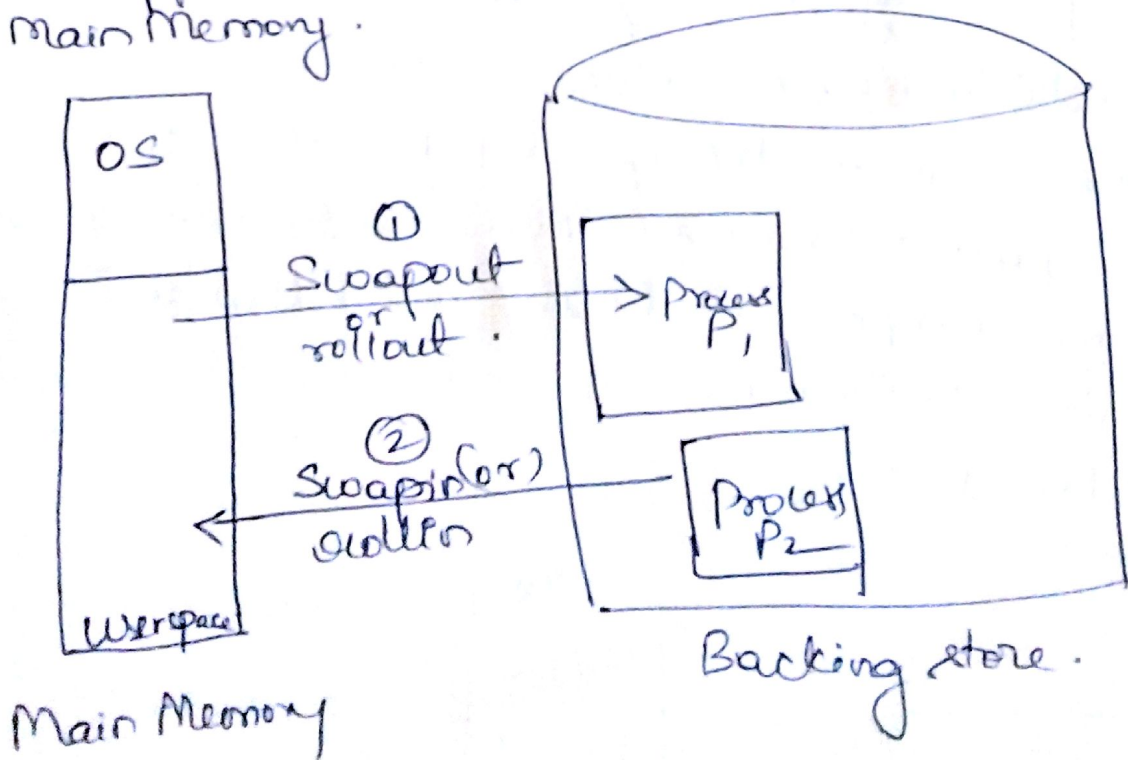 Main Memory.
OS
①
Swapout
or
rollout.
Process
P1
②
Swapin (or)
rollin
Process
P2
Userspace
Backing store.
Main Memory